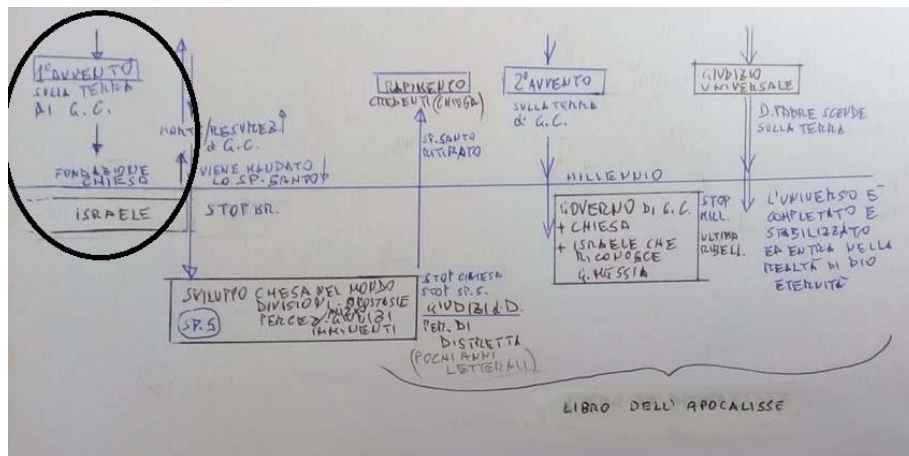 1° AVVENTO
SULLA TERRA
DI G.C.
FONDAZIONE
CHIESA
ISRAELE
MORTE/RESURREZ
di G.C.
VIENE MANDATO
LO SP. SANTO
STOP ISR.
SVILUPPO CHIESA NEL MONDO
DIVISIONI. APOSTASIE
SP.S
IMMINENTI
RAPIMENTO
CREDENTI (CHIESA)
SP. SANTO
RITIRATO
STOP CHIESA
STOP SP.S.
GIUDIZI d D.
PER. DI
DISTRETTA
(POCHI ANNI
LETTERALI)
2° AVVENTO
SULLA TERRA
di G.C.
MILLENNIO
GOVERNO DI G.C.
+ CHIESA
+ ISRAELE CHE
RICONOSCE
MESSIA
STOP
MILL.
ULTIMA
RIBELL.
GIUDIZIO
UNIVERSALE
D. PADRE SCENDE
SULLA TERRA
L'UNIVERSO È
COMPLETATO E
STABILIZZATO
ED ENTRA NELLA
REALTÀ DI DIO
ETERNITÀ
LIBRO DELL'APOCALISSE